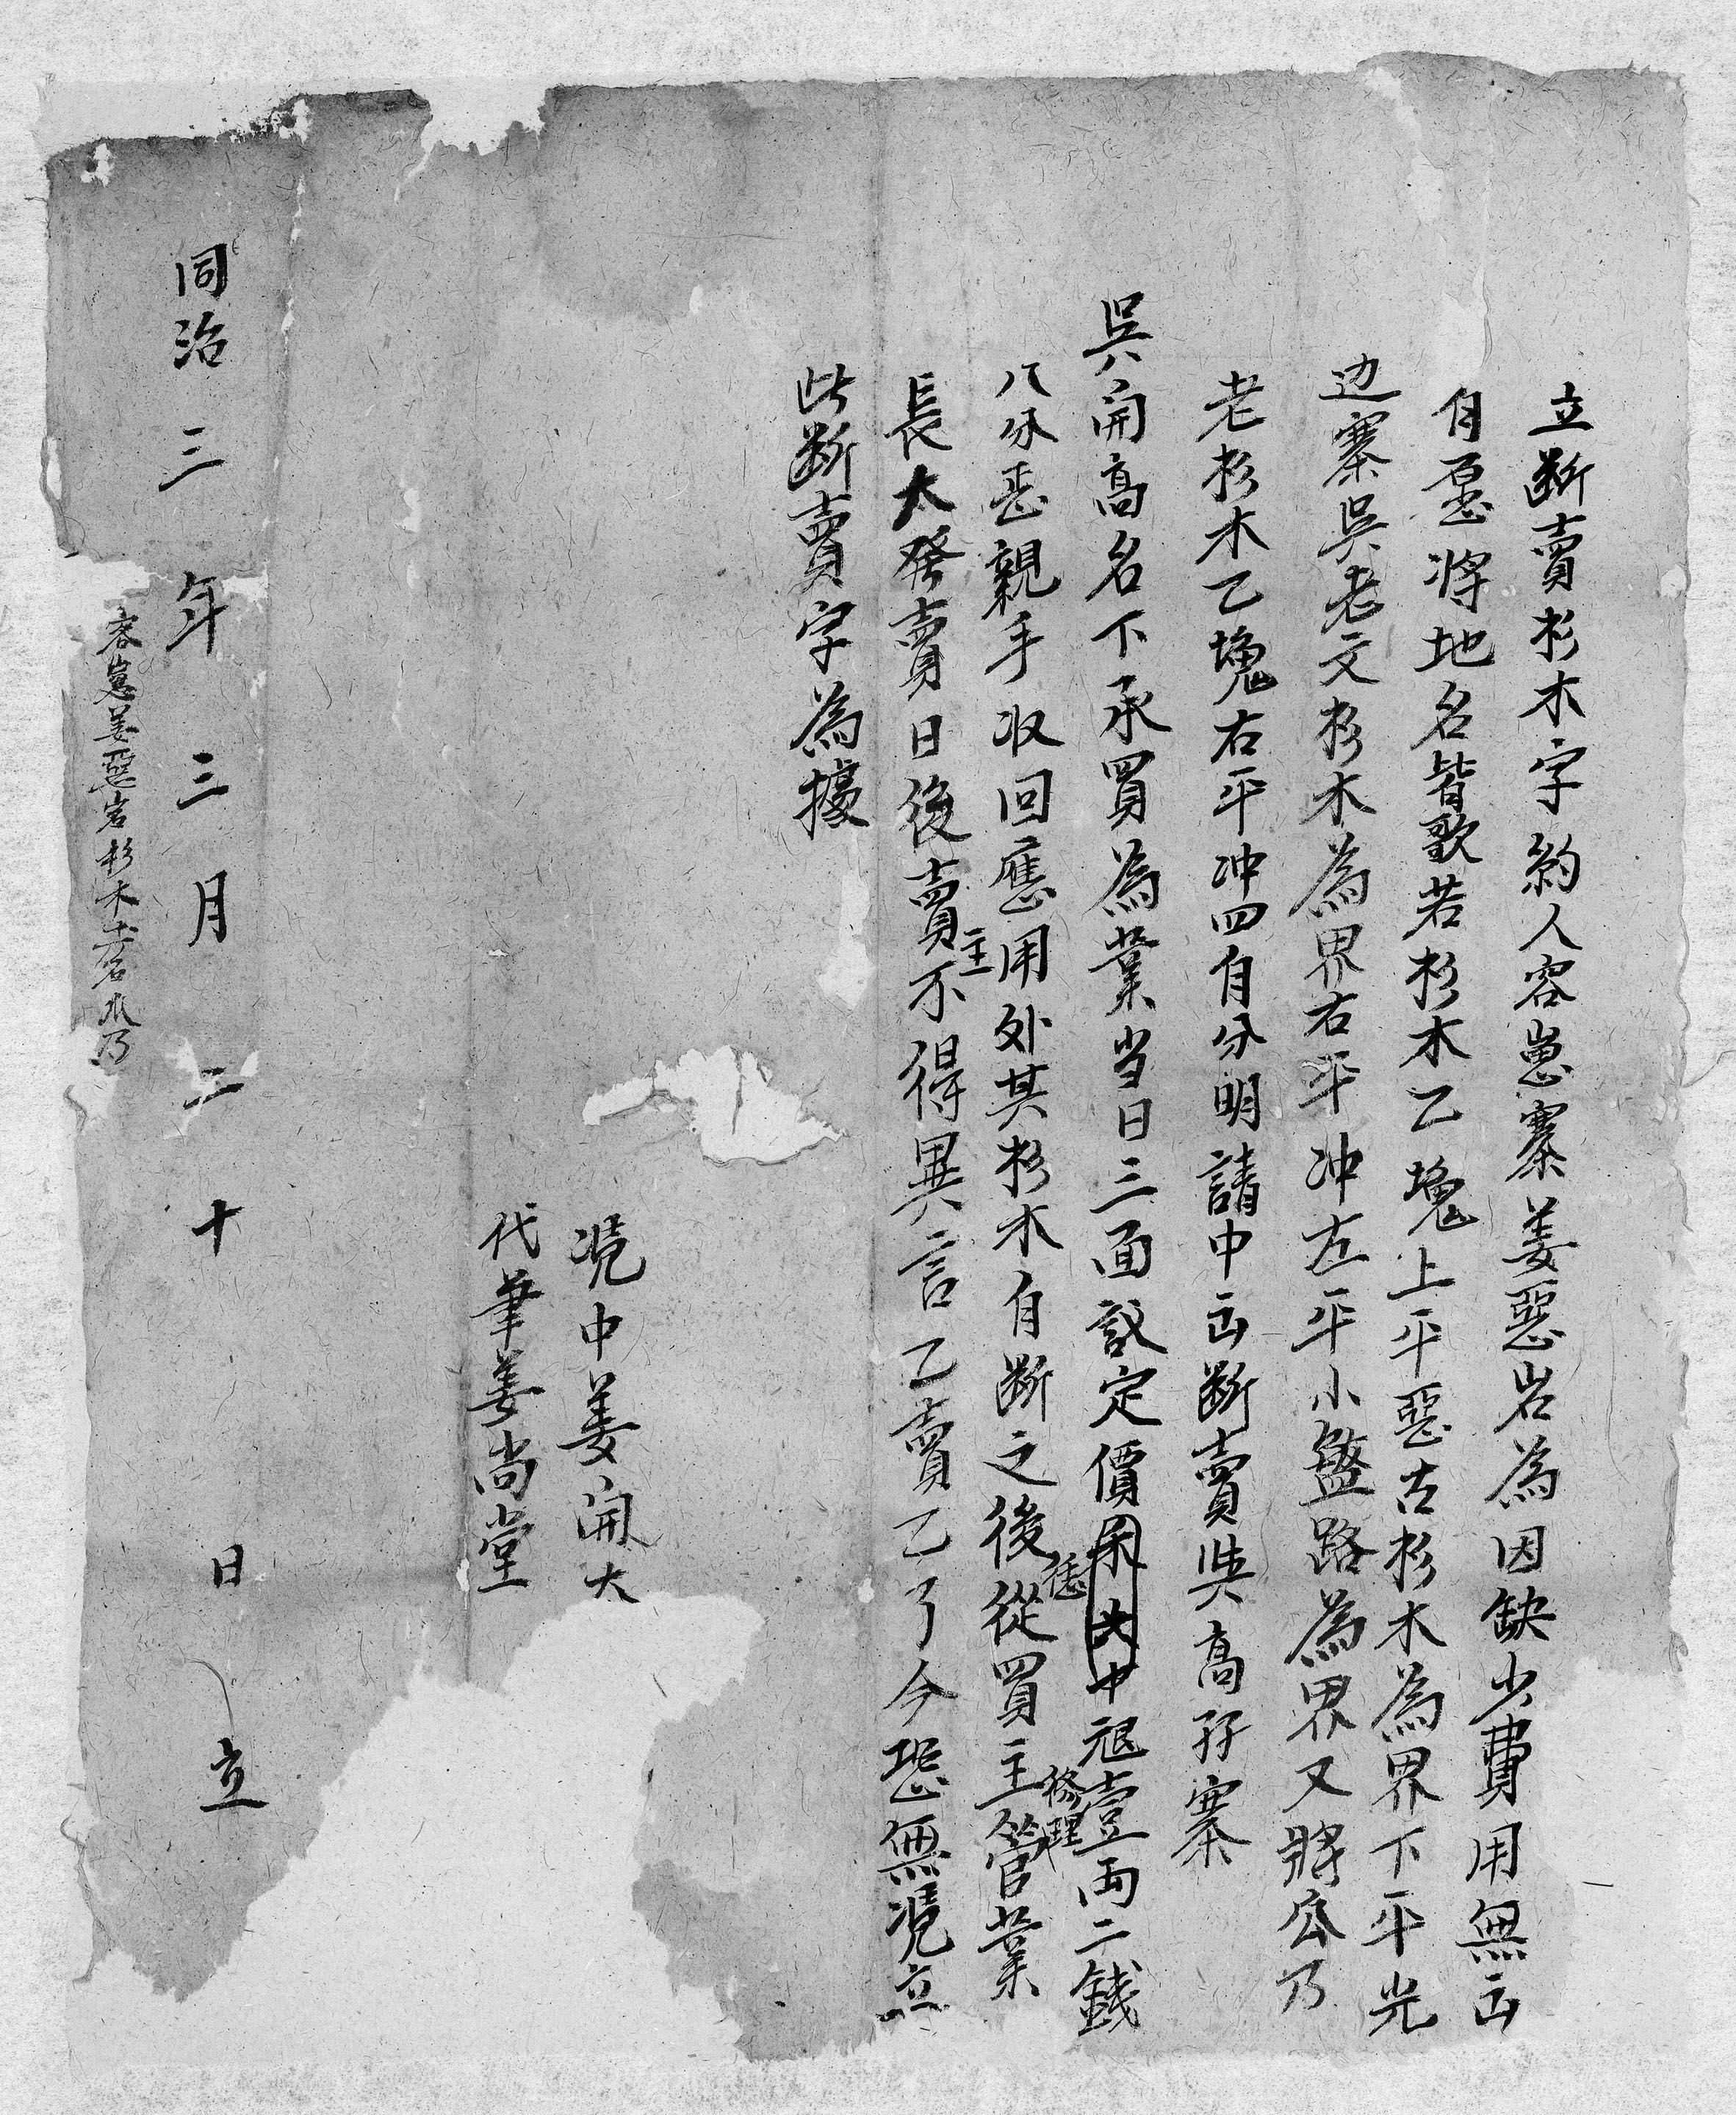 立断賣杉木字約人容崽寨姜惡岩為因缺少費用無出
自愿將地名皆歌若杉木乙塊上平惡古杉木為界下平光
边寨吳老文杉木為界右平冲左平小盤路為界又將公乃
老杉木乙塊右平冲四自分明請中出断賣與高孖寨
吳開高名下承買為業当日三面議定價中艰壹両二錢
八分惡親手收回應用处其杉木自断之後從憑買主修理管業
長大發賣日後賣主不得異言乙賣乙了今恐無凴立
此断賣字為據
凴中姜開大
代筆姜尚堂
同治三年三月二十日立
容崽姜惡岩杉木皆若 公乃